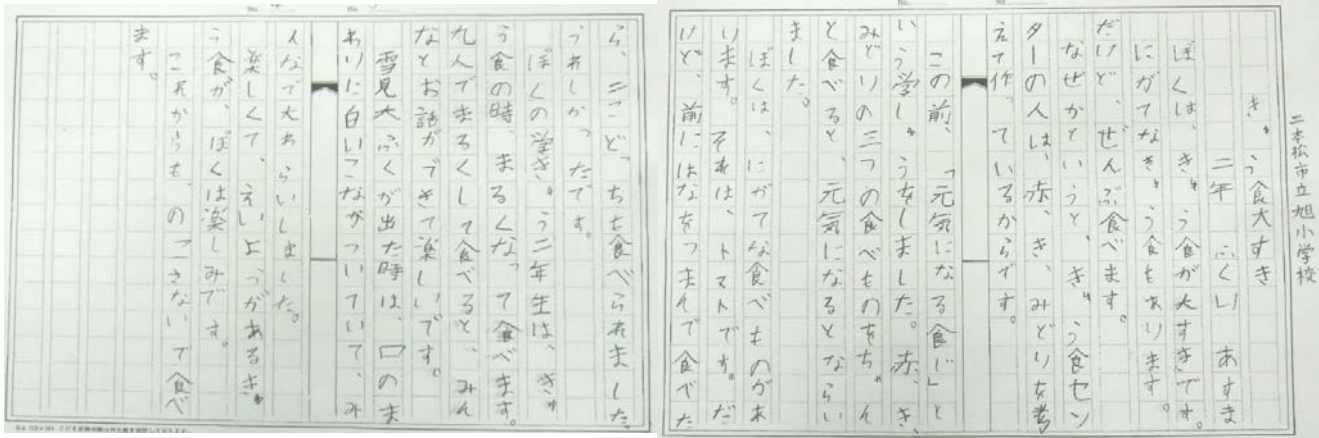 二本松市立旭小学校
きゅう食大すき
二年 ふくい あすま
ぼくは、きゅう食が大すきです。
にがてなきゅう食もあります。
だけど、ぜんぶ食べます。
なぜかというと、きゅう食セン
ターの人は、赤、き、みどりを考
えて作っているからです。
この前、「元気になる食じ」と
いう学しゅうをしました。赤、き、
みどりの三つの食べものをちゃん
と食べると、元気になるとならい
ました。
ぼくは、にがてな食べものがあ
ります。それは、トマトです。だ
けど、前にはなをつまんで食べた
ら、二こどっちも食べられました。
うれしかったです。
ぼくの学きゅう二年生は、きゅ
う食の時、まるくなって食べます。
九人でまるくして食べると、みん
なとお話ができて楽しいです。
雪見大ふくが出た時は、口のま
わりに白いこながついていて、み
んなで大わらいしました。
楽しくて、えいようがあるきゅ
う食が、ぼくは楽しみです。
これからも、のこさないで食べ
ます。